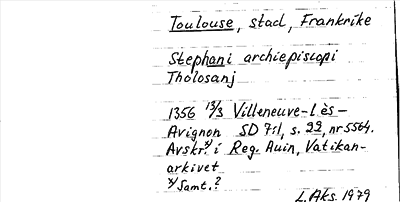 Toulouse, stad, Frankrike
Stephani archiepiscopi
Tholosanj
1356 13/3 Villeneuve-lès-
Avignon SD 7:1, s. 22, nr 5564.
Avskr. x) i Reg. Auin, Vatikan-
arkivet
x) Samt.?
L. Aks. 1979